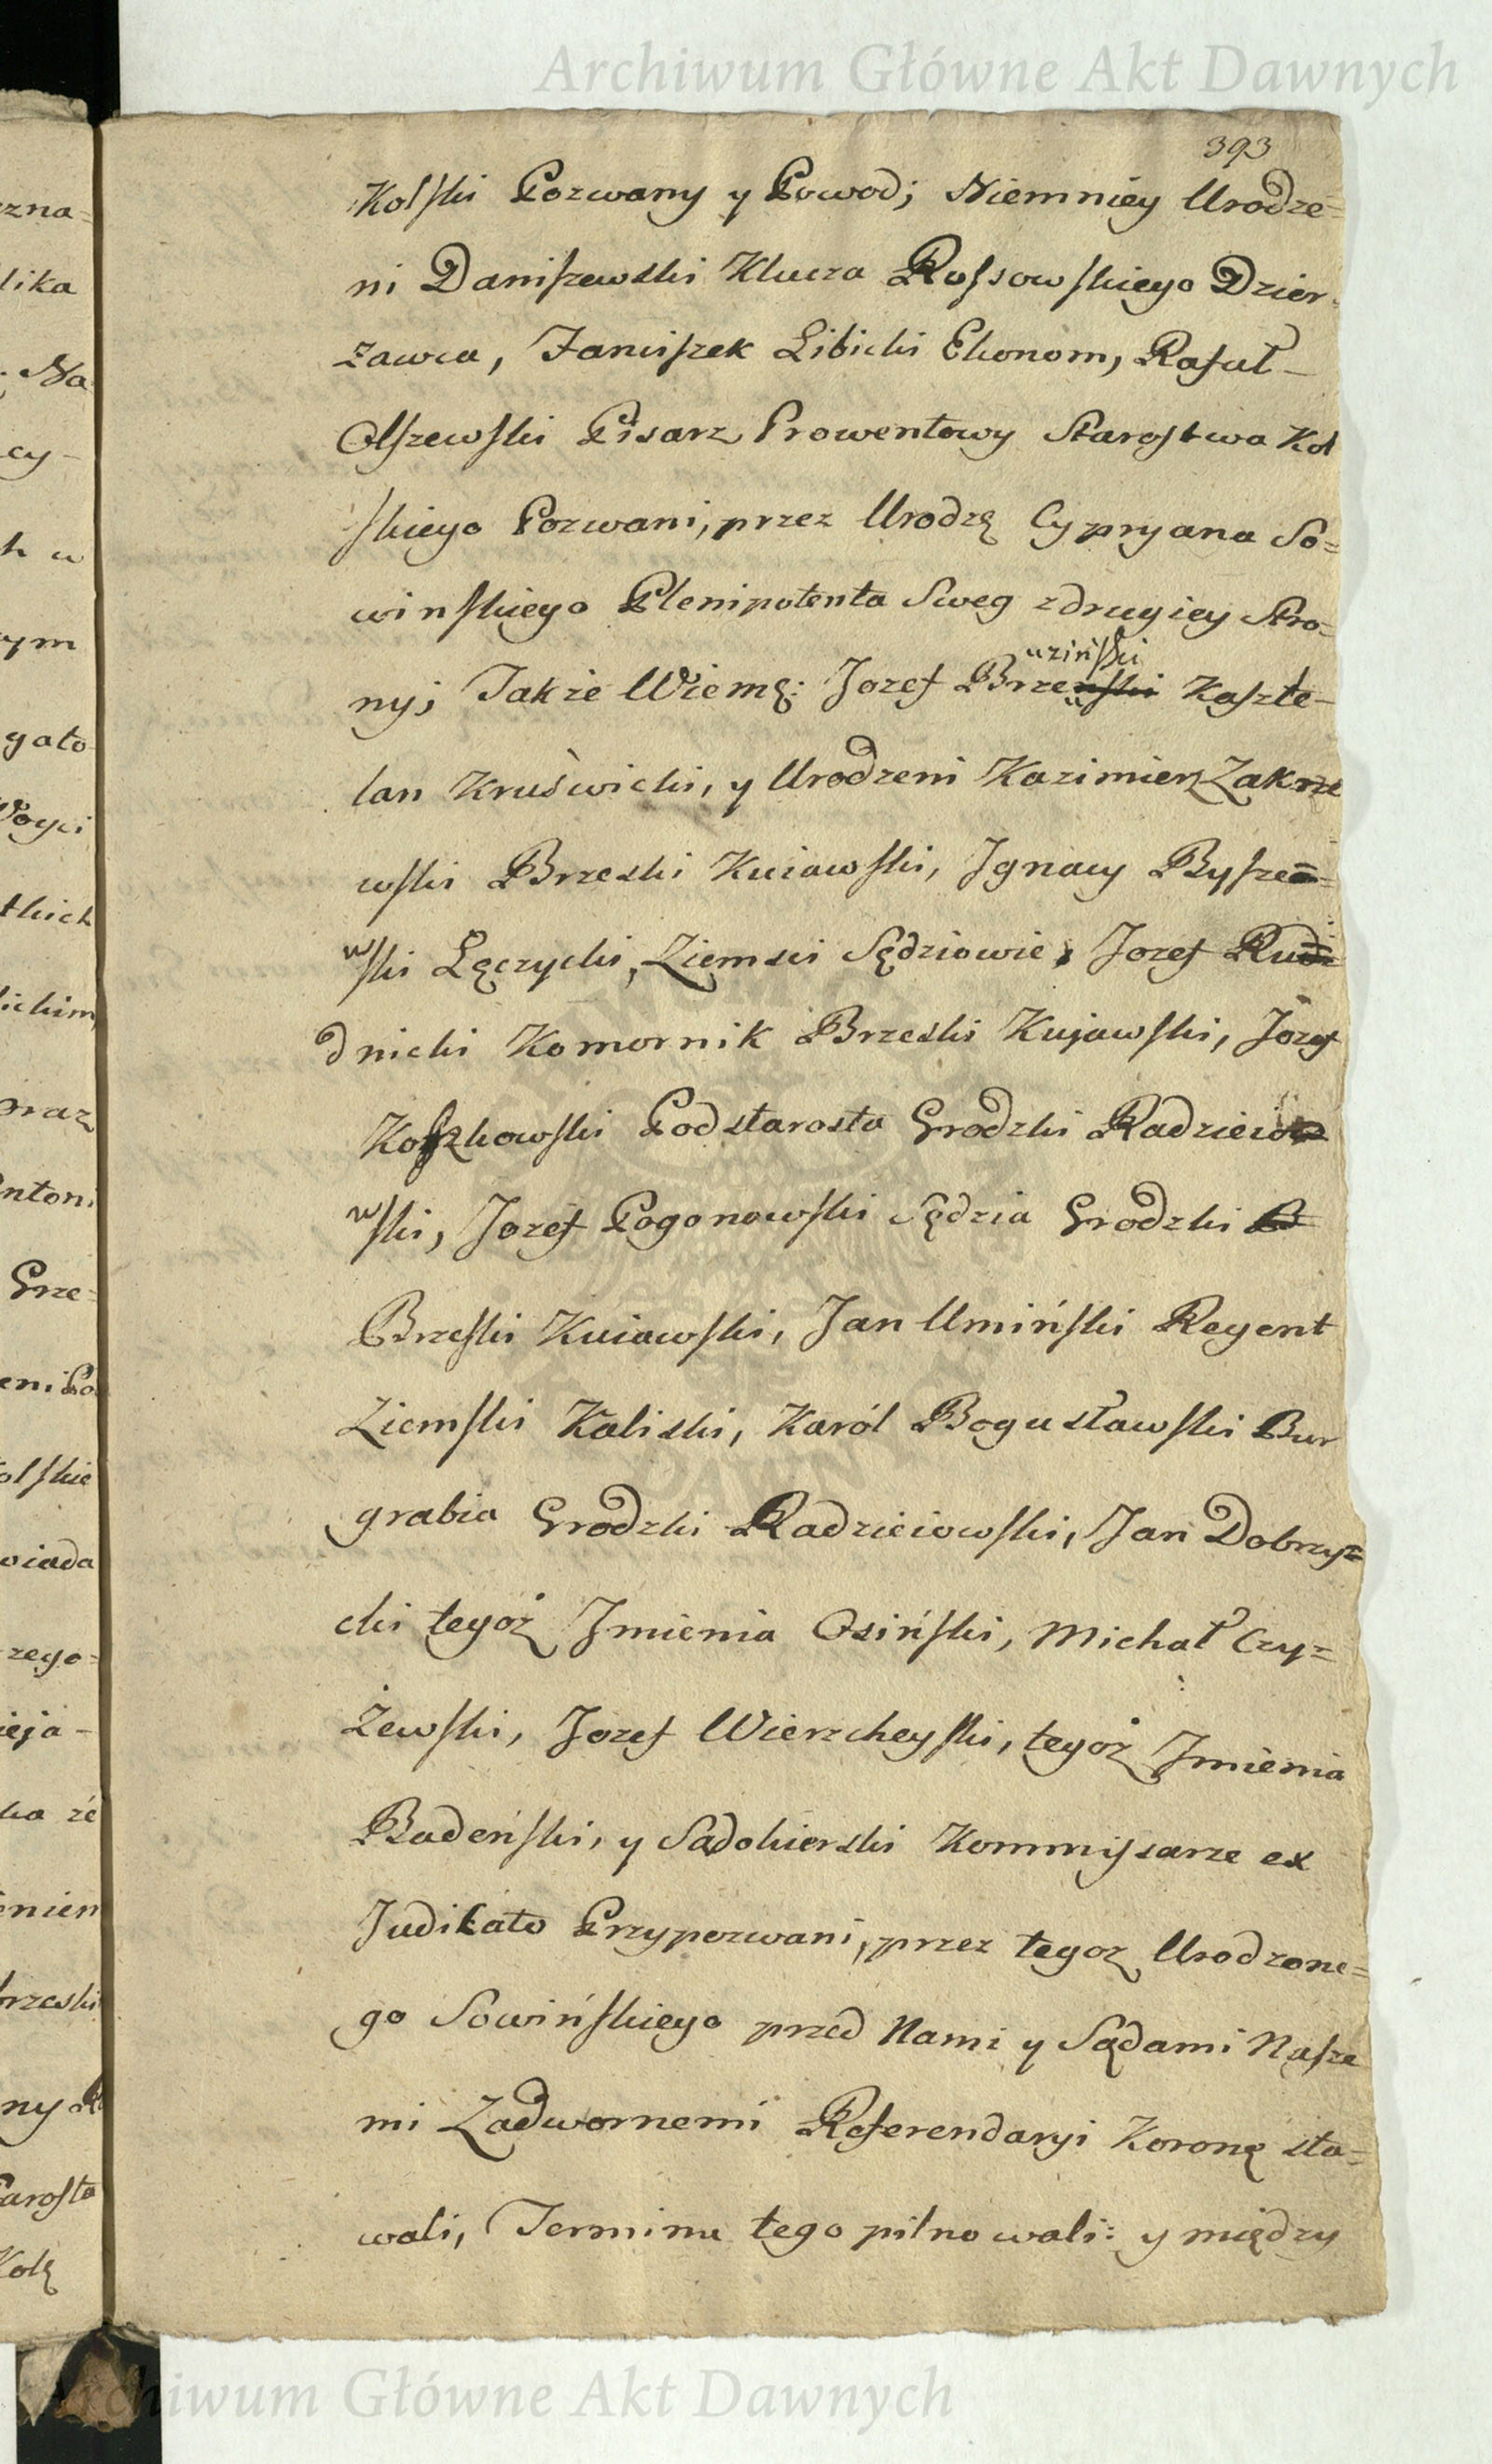 Archiwum Główne Akt Dawnych
393
Kolski Pozwany y Powod; Niemniey Urodze=
ni Daniszewski Klucza Rossowskiego Dzier
żawca, Franciszek Libicki Ekonom, Rafał
Olszewski Pisarz Prowentowy Starostwa Kol
skiego Pozwani, przez Urodzę Cypryana So=
winskiego Plenipotenta Sweg z drugiey Stro=
ny; Także Wiemę: Jozef Brze uziński Kaszte-
lan Kruświcki, y Urodzeni Kazimierz Zakrze
wski Brzeski Kuiawski, Ignacy Bysze=
wski Łęczycki, Ziemscy Sędziowie, Jozef Ru
dnicki Komornik Brzeski Kujawski, Józef
Koszkowski Podstarosta Grodzki Radzieio
wski, Jozef Pogonowski Sędzia Grodzki
Brzeski Kuiawski, Jan Umiński Regent
Ziemski Kaliski, Karól Bogusławski Bur
grabia Grodzki Radzieiowski, Jan Dobrzy=
cki tegoż Imienia Osiński, Michał Czy=
żewski, Jozef Wierzcheyski, tegoż Imienia
Badeński, y Sadokierski Kommissarze ex
Judikato Przypozwani, przez tegoz Urodzone=
go Sowińskiego przed Nami y Sądami Nasze
mi Zadwornemi Referendaryi Koronę sta=
wali, Terminu tego pilnowali: y między
zna=
lika
Na
cy-
h w
ym
gato
Woyci
tkich
ickim
oraz
Antoni
Grze=
eni Po
olskie
wiada
zego=
ieja-
ka że
mien
brzeski
ny
Starosta
Kolę
Archiwum Główne Akt Dawnych